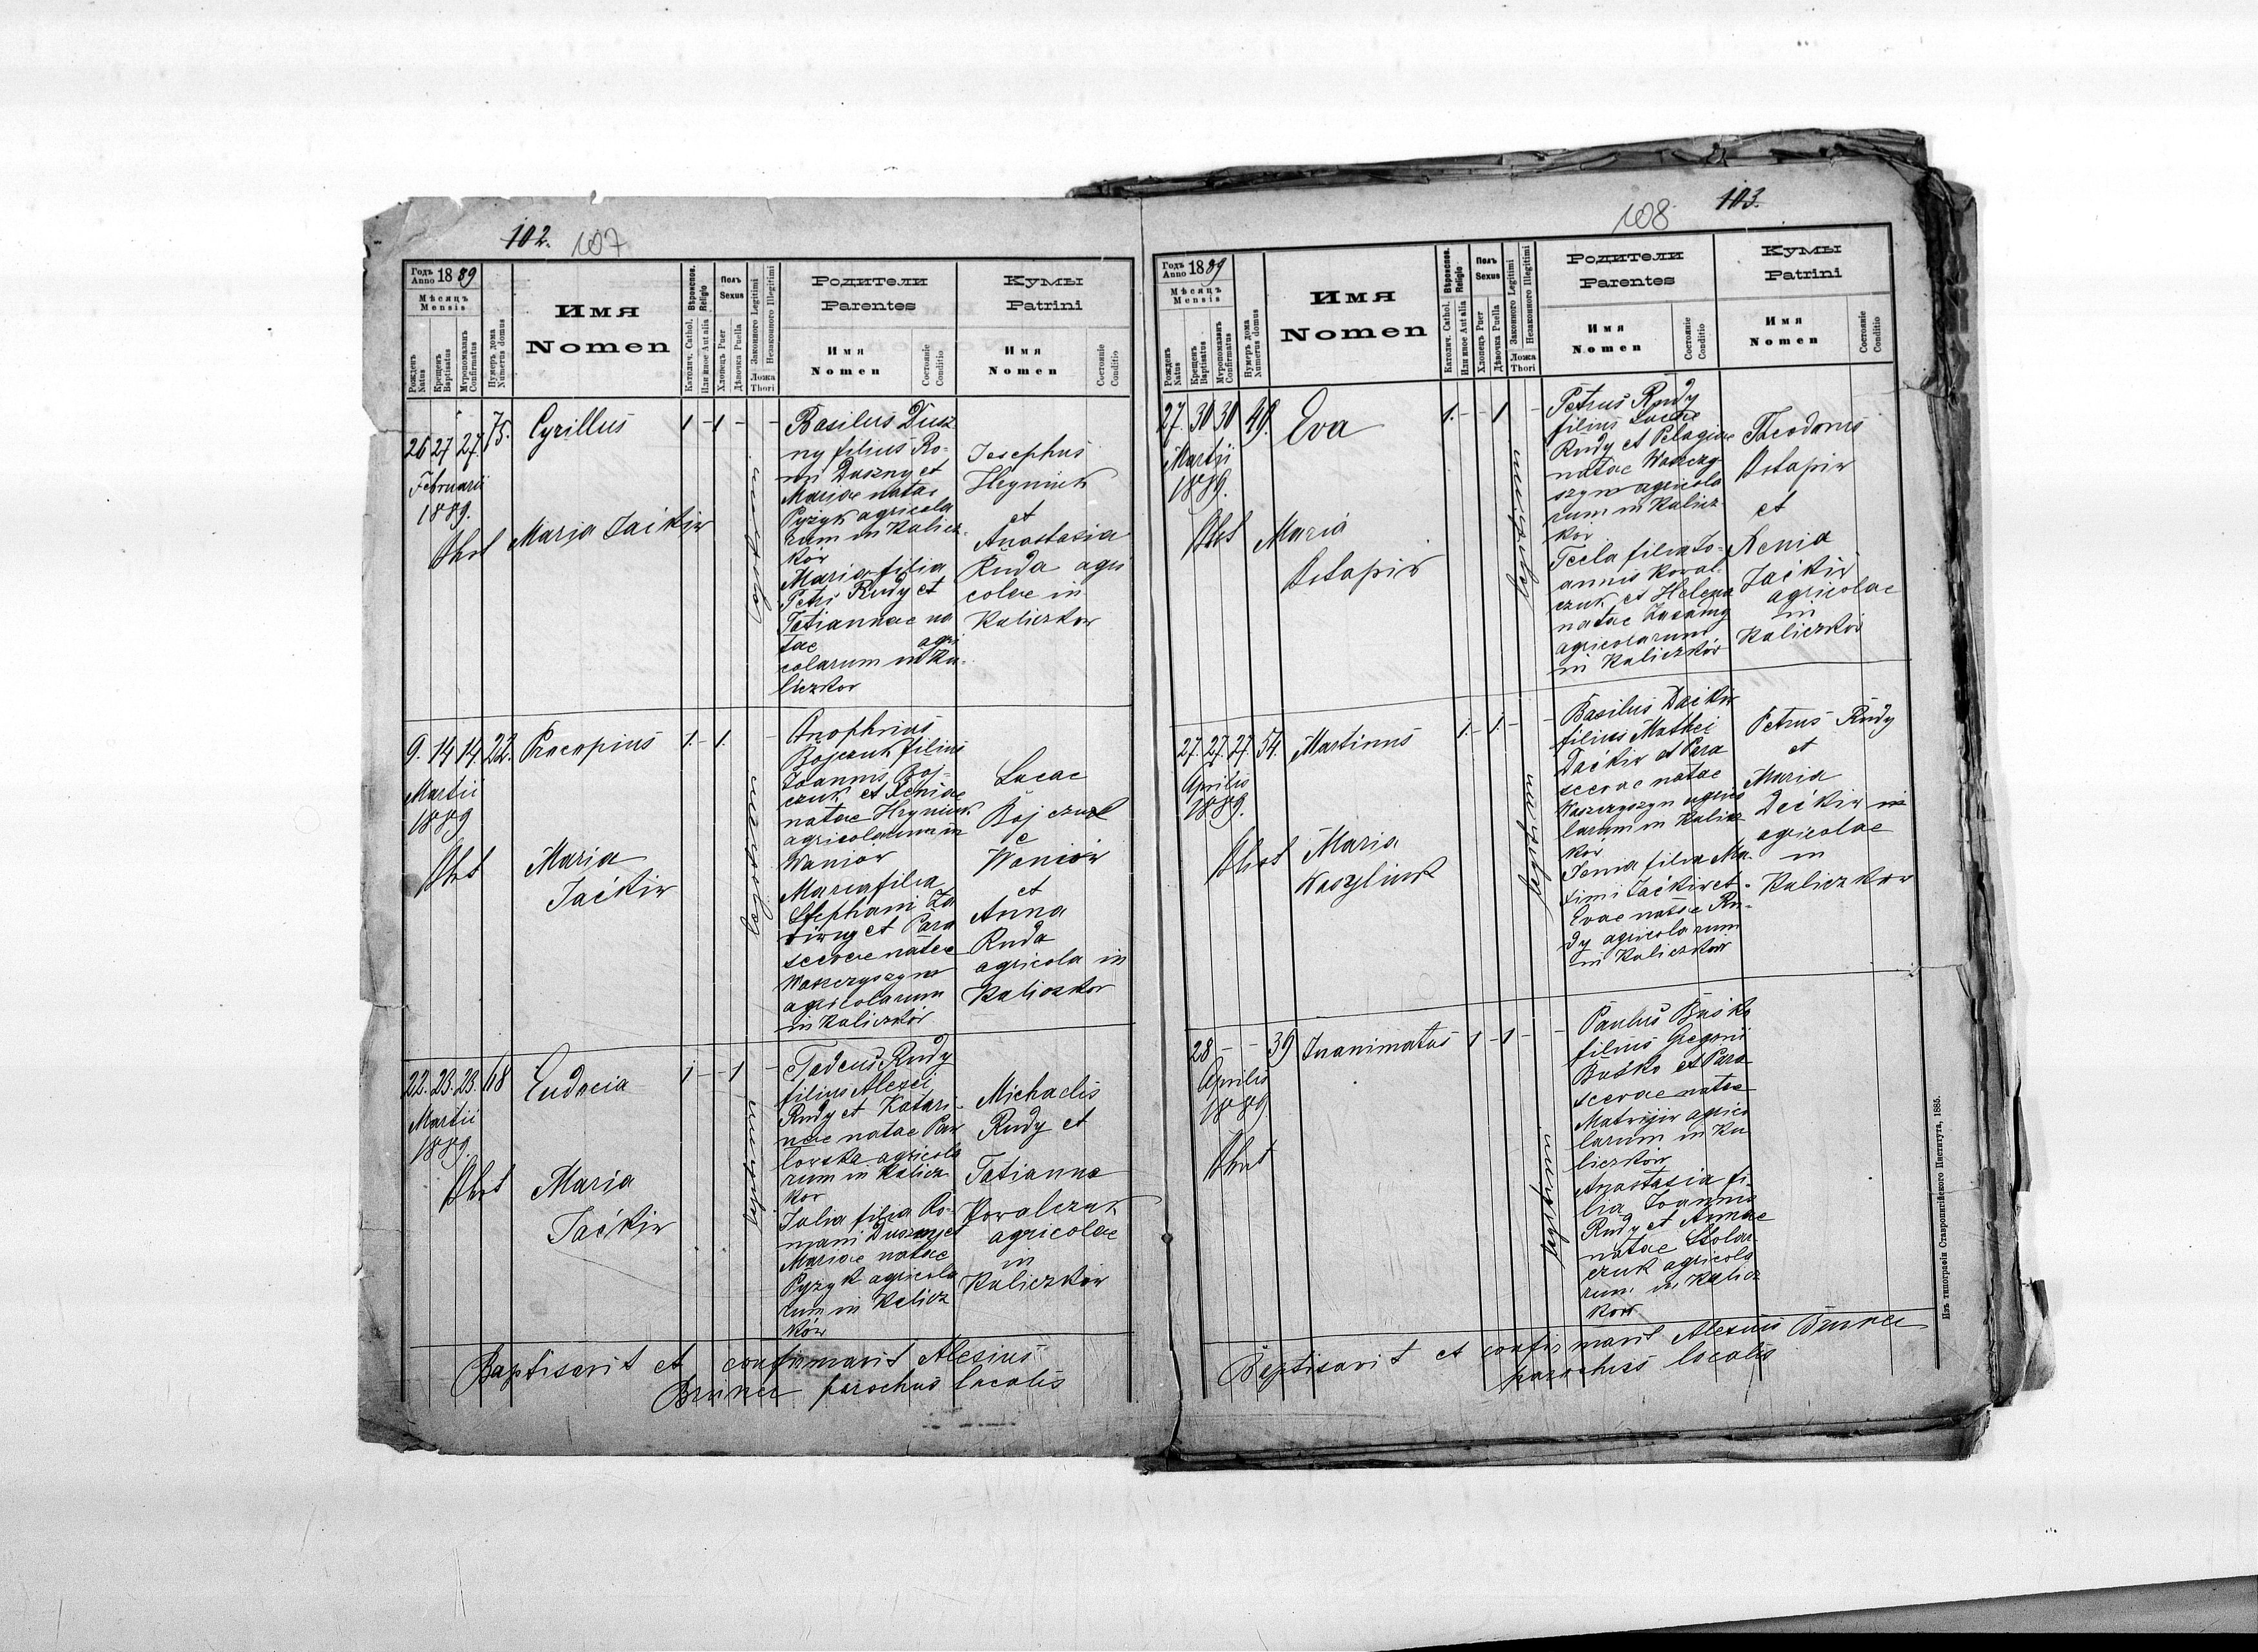 102. 107
Годъ Anno 1889
Мѣсяцъ Mensis
Рожденъ Natus
Крещенъ Baptisatus
Мѵропомазанъ Confirmatus
Нумеръ дома Numerus domus
Имя
Nomen
Вѣроиспов. Religio
Католич. Cathol.
Или иное Aut alia
Полъ Sexus
Хлопецъ Puer
Дѣвочка Puella
Законного Legitimi
Незаконного Illegitimi
Ложа Thori
Родители
Parentes
Имя
Nomen
Состояніе
Conditio
Кумы
Patrini
Имя
Nomen
Состояніе
Conditio
26 27 27. 75.
Februarii
1889.
Obst
Cyrillus
Maria Jaćkiw
1 - 1 - -
Basilius Dusz
ny filius Ro-
mi Duszny et
Mariae natae
Pyzyk agricola
rum in Kulicz-
ków
Maria filia
Petri Rudy et
Tatiannae na
tae agri
colarum in Ku-
liczkow
Josephus
Hryniuk
et
Anastasia
Ruda agri
colae in
Kuliczkow
9. 14 14. 22.
Martii
1889
Obst
Procopius
Maria
Jaćkiw
1. - 1. -
Onophrius
Bojczuk filius
Joannis Boj-
czuk et Xeniae
natae Hryniuk
agricolarum in
Waniów
Maria filia
Stephani Za
et Para
scevae natae
Waszczyszyn
agricolarum
in Kuliczków
Lucae
Bojczuk
Waniów
et
Anna
Ruda
agricola in
Kuliczkow
22. 23. 23. 68
Martii
1889.
Obst
Eudocia
Maria
Jaćkiw
1 - - 1 -
Tadeus Rudy
filius Alexei
Rudy et Katari-
nae natae Paw
lowska agricola
rum in Kulicz
kow
Julia filia Ro-
mani Duszny et
Mariae natae
Pyzyk agricola
rum in Kulicz
ków
Michaelis
Rudy et
Tatianna
Kowalczuk
agricolae
in
Kuliczków
Baptisavit et confirmavit Alexius
parochus localis
108 103.
Годъ Anno 1889
Мѣсяцъ Mensis
Рожденъ Natus
Крещенъ Baptisatus
Мѵропомазанъ Confirmatus
Нумеръ дома Numerus domus
Имя
Nomen
Вѣроиспов. Religio
Католич. Cathol.
Или иное Aut alia
Полъ Sexus
Хлопецъ Puer
Дѣвочка Puella
Законного Legitimi
Незаконного Illegitimi
Ложа Thori
Родители
Parentes
Имя
Nomen
Состояніе
Conditio
Кумы
Patrini
Имя
Nomen
Состояніе
Conditio
27. 30 30
Martii
1889.
Obst
Eva
Maria
Ostapiw
1. - - 1 -
legitimi
Petrus Rudy
filius Lucae
Rudy et Pelagiae
natae Waszczy
szyn agricola
rum in Kulicz
ków
Tecla filia Jo-
annis Kowal-
czuk et Helena
natae
agricolarum
in Kuliczków
Theodorus
Ostapiw
et
Xenia
Jaćkiw
agricolae
in
Kuliczków
27. 27. 27. 54.
Aprilis
1889.
Obst
Martinus
Maria
Wasyliuk
1. - 1. - -
legitimi
Basilius Daćkiw
filius Mathei
Daćkiw et Para
scevae natae
Waszczyszyn agrico
larum in Kulicz
ków
filia Ma-
ximi Jaćkiw et
Evae natae Ru-
dy agricolarum
in Kuliczków
Petrus Rudy
et
Maria
agricolae
in
Kuliczkow
28 - - 39
Aprilis
1889
Obst
Inanimatus
1 - 1 - -
legitimi
Paulus Buśko
filius Gregorii
Buśko et Para
scevae natae
Matwijiw agrico
larum in Ku
liczków
Anastasia fi-
lia Joannis
Rudy et Annae
natae Stolar
czuk agricola
rum in Kulicz
kow
Baptisavit et confirmavit Alexius
parochus localis
Изъ типографіи Ставропигійского Института, 1885.